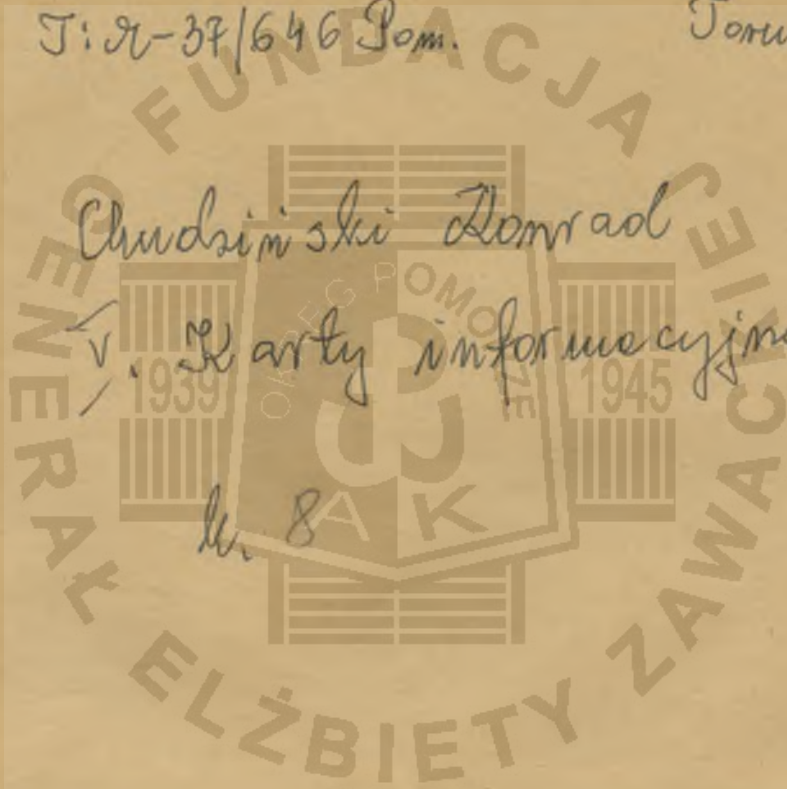 T: R-37/646 Pom. Toru
Chudziński Konrad
V. Karty informacyjn
k. 8
FUNDACJA GENERAŁ ELŻBIETY ZAWACKIEJ
OKRĘG POMORZE
1939 1945
AK